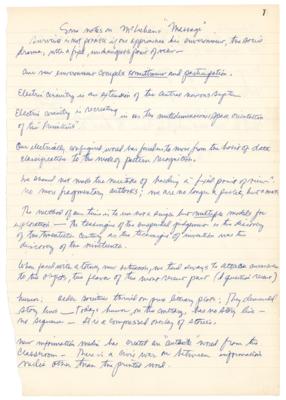 1
Some notes on McLuhan's "Message"
Survival is not possible if one approaches his environment, the social
drama, with a fixed, unchangeable point of view.
Our new environment compels commitment and participation.
Electric circuitry is an extension of the central nervous system
Electric circuitry is recreating in us the multidimensional space orientation
of the "primitive".
Our electrically-configured world has forced us to move from the habit of data
classification to the mode of pattern recognition.
We no more fragmentary outlooks; we are no longer a
The method of our time is to use not a single but multiple models for
exploration — The technique of the suspended judgment is the discovery
of the twentieth century as the technique of invention was the
discovery of the nineteenth.
When faced with a totally new situation, we tend always to attach ourselves
to the objects, the flavor of the most recent past
humor: older societies thrived on purely literary plots; They demanded
story lines — Today's humor, on the contrary, has no story line —
no sequence — it is a compressed overlay of stories.
new information media has created an world from the
classroom — There is a civic war on between information
media other than the printed word.